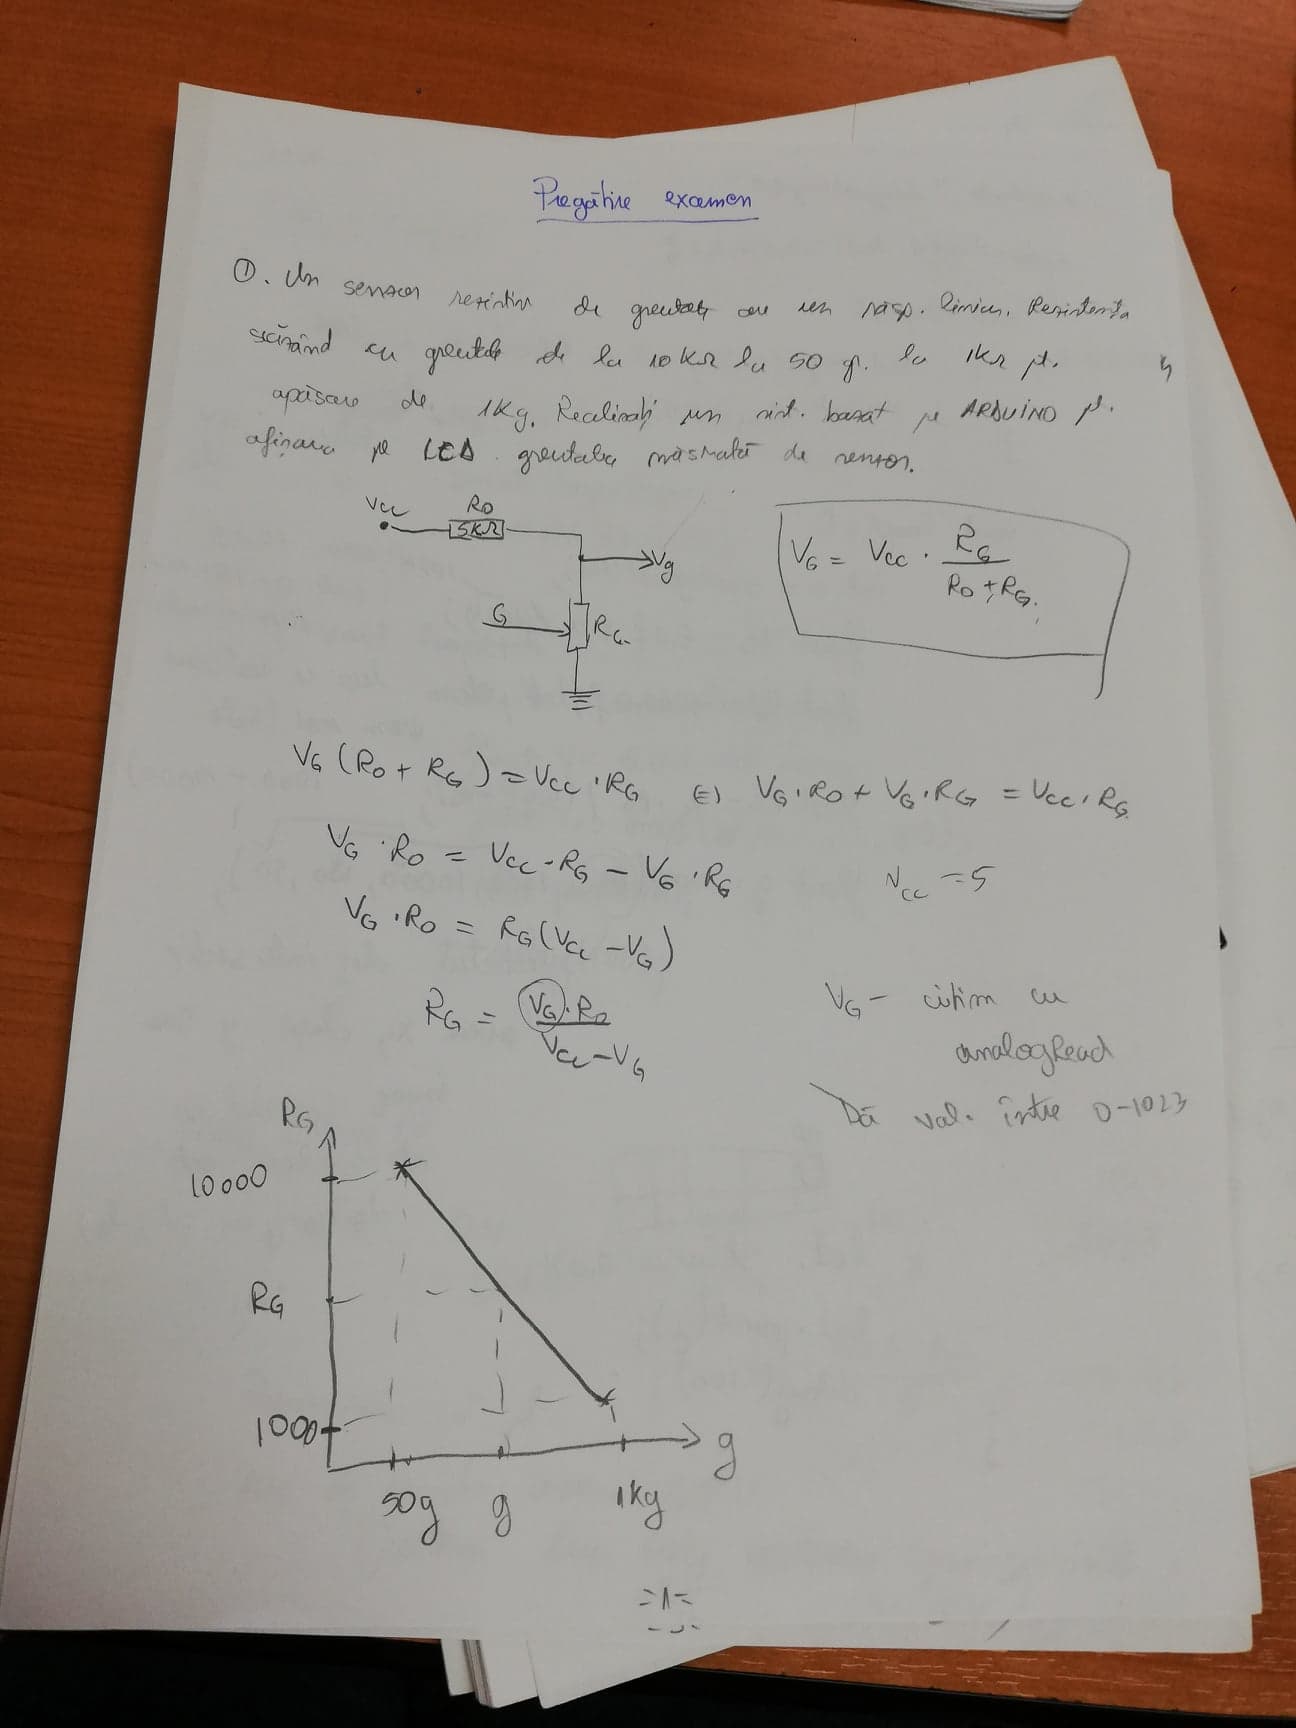 Pregătire examen
①. Un senzor rezistiv de greutate are un răsp. liniar, Rezistența
scăzând cu greutate de la 10KΩ la 50 gr. la 1KΩ pt.
apăsare de 1Kg. Realizați un sist. bazat pe ARDUINO pt.
afișarea pe LCD greutatea măsurată de senzor.
Vcc R0
5KΩ
Vg
G RG
VG = Vcc · RG / R0 + RG.
VG (R0 + RG) = Vcc · RG (=) VG · R0 + VG · RG = Vcc · RG
VG · R0 = Vcc · RG - VG · RG
Vcc = 5
VG · R0 = RG (Vcc - VG)
RG = VG · R0 / Vcc - VG
VG - citim cu
analogRead
Dă val. între 0-1023
RG
10000
RG
1000
g
50g g 1Kg
=1=